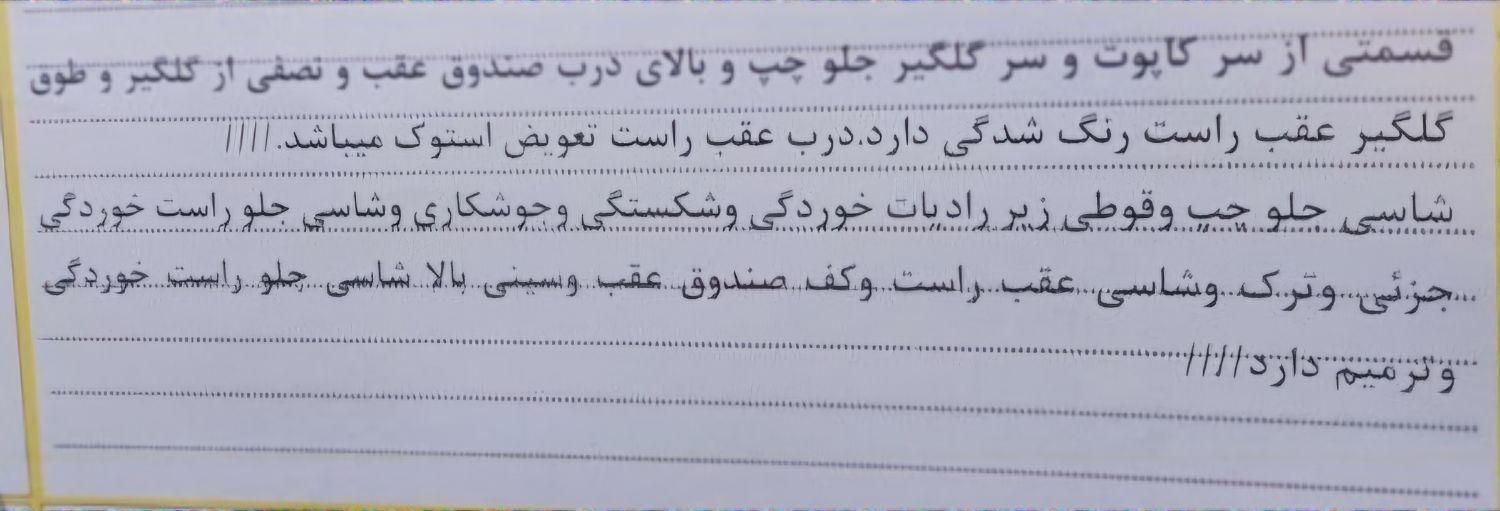 قسمتی از سر کاپوت و سر گلگیر جلو چپ و بالای درب صندوق عقب و نصفی از گلگیر و طوق
گلگیر عقب راست رنگ شدگی دارد.درب عقب راست تعویض استوک میباشد.////
شاسی جلو چپ وقوطی زیر رادیات خوردگی وشکستگی وجوشکاری وشاسی جلو راست خوردگی
جزئی وترک وشاسی عقب راست وکف صندوق عقب وسینی بالا شاسی جلو راست خوردگی
وترمیم دارد////